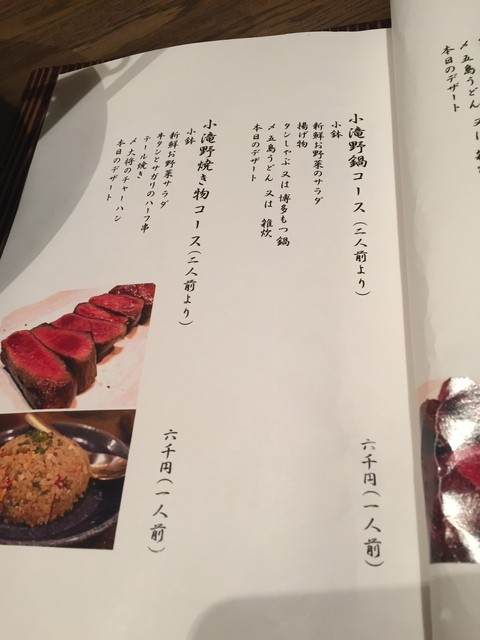 五島うどん 又は
本日のデザート
小滝野鍋コース(二人前より)
小鉢
新鮮お野菜のサラダ
揚げ物
タンしゃぶ 又は 博多もつ鍋
〆 五島うどん 又は 雑炊
本日のデザート
六千円(一人前)
小滝野焼き物コース(二人前より)
小鉢
新鮮お野菜サラダ
牛タンとサガリのハーフ串
テール焼き
〆 大将のチャーハン
本日のデザート
六千円(一人前)